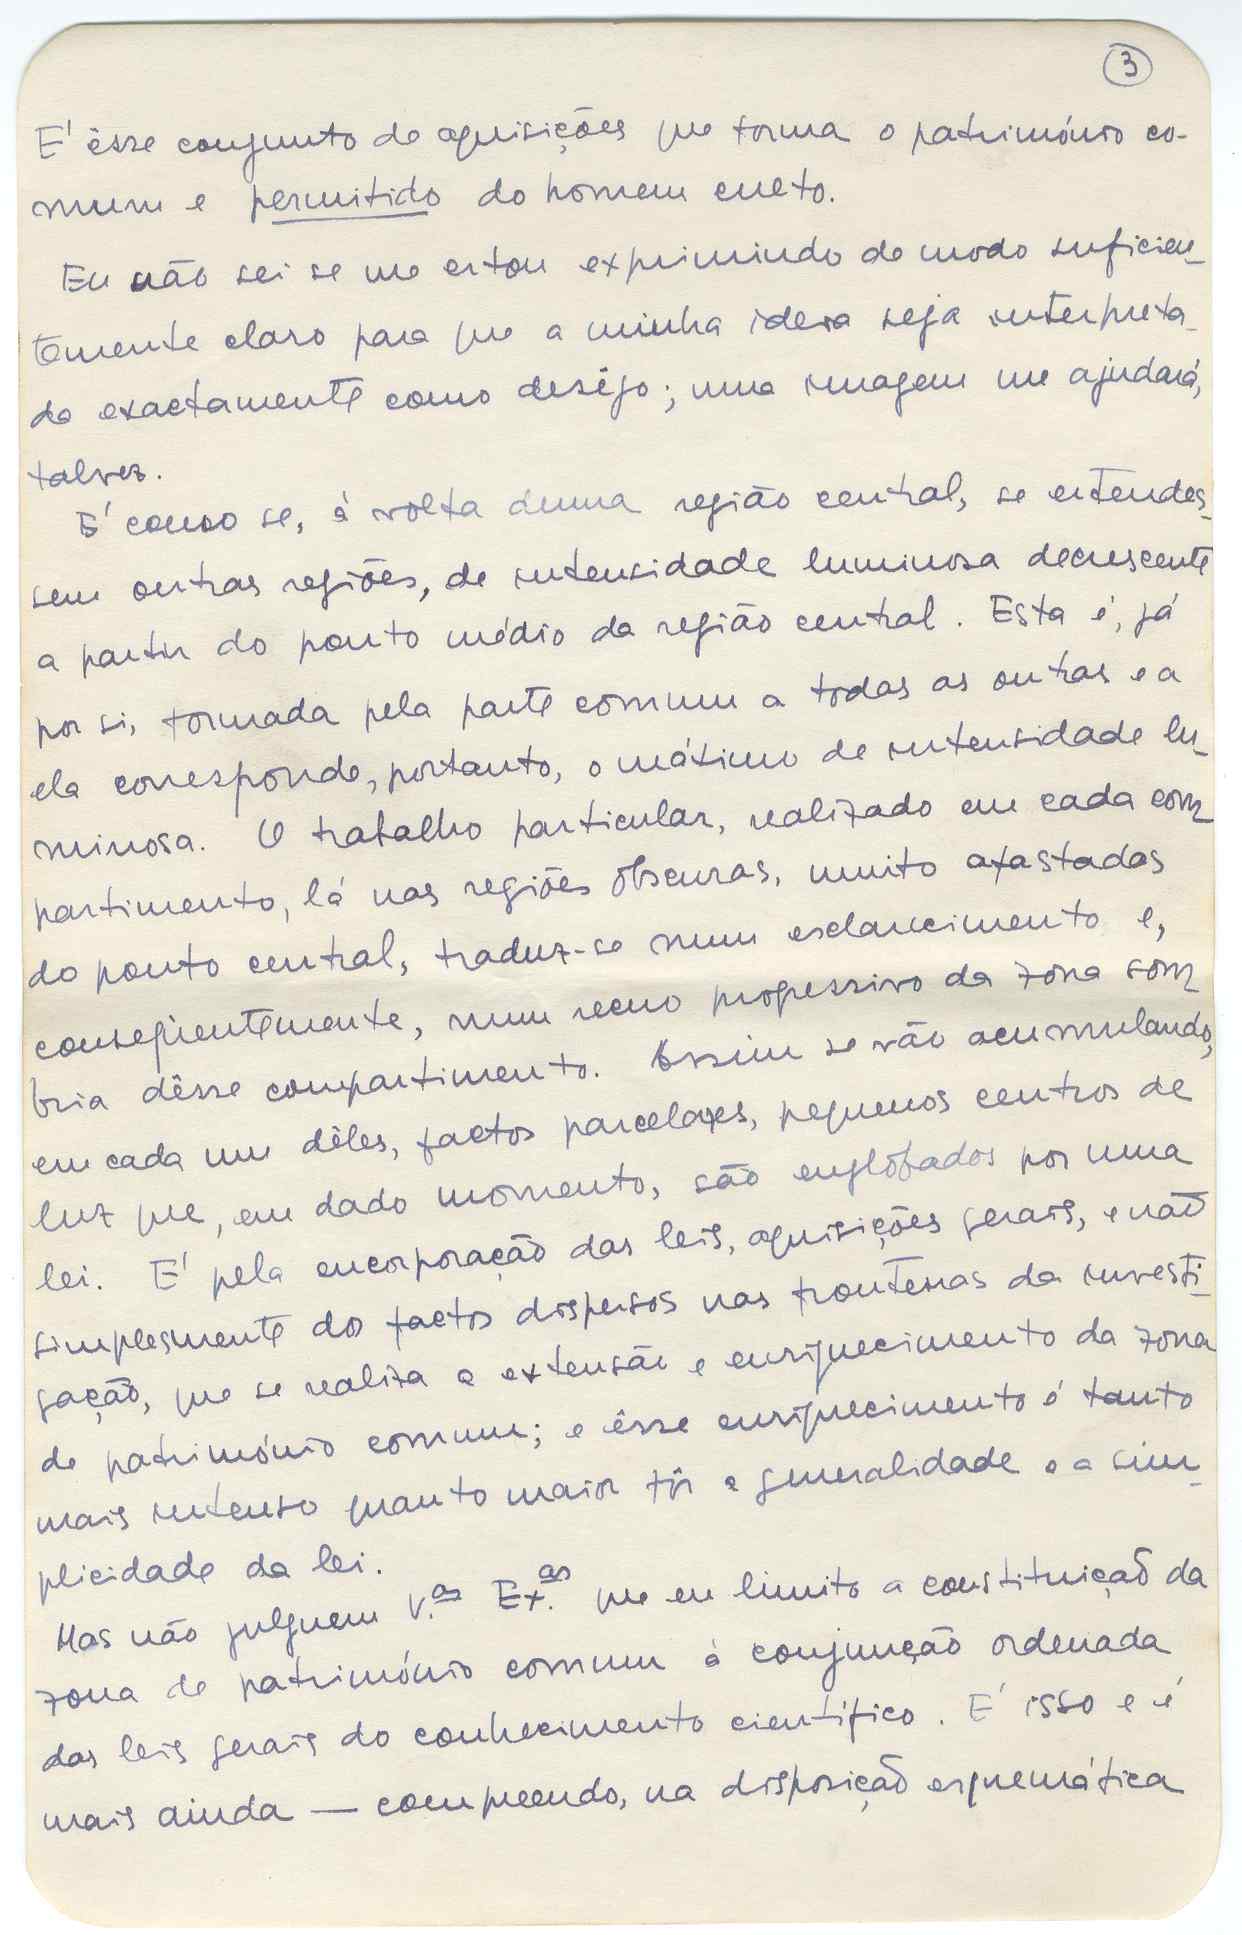 3
E' êsse conjunto de aquisições que forma o património co-
mum e permitido do homem culto.
Eu não sei se me estou exprimindo de modo suficien-
temente claro para que a minha ideia seja interpreta-
da exactamente como desêjo; uma imagem me ajudará,
talvez.
E' como se, à volta duma região central, se estendes-
sem outras regiões, de intensidade luminosa decrescente
a partir do ponto médio da região central. Esta é, já
por si, formada pela parte comum a todas as outras e a
ela corresponde, portanto, o máximo de intensidade lu-
minosa. O trabalho particular, realizado em cada com-
partimento, lá nas regiões obscuras, muito afastadas
do ponto central, traduz-se num esclarecimento e,
conseqüentemente, num recuo progressivo da zona som-
bria dêsse compartimento. Assim se vão acumulando,
em cada um dêles, factos parcelares, pequenos centros de
luz que, em dado momento, são englobados por uma
lei. E' pela encorporação das leis, aquisições gerais, e não
simplesmente dos factos dispersos nas fronteiras da investi-
gação, que se realiza a extensão e enriquecimento da zona
de património comum; e êsse enriquecimento é tanto
mais intenso quanto maior fôr a generalidade e a sim-
plicidade da lei.
Mas não julguem V.as Ex.as que eu limito a constituição da
zona de património comum à conjunção ordenada
das leis gerais do conhecimento científico. E' isso e é
mais ainda — compreendo, na disposição esquemática